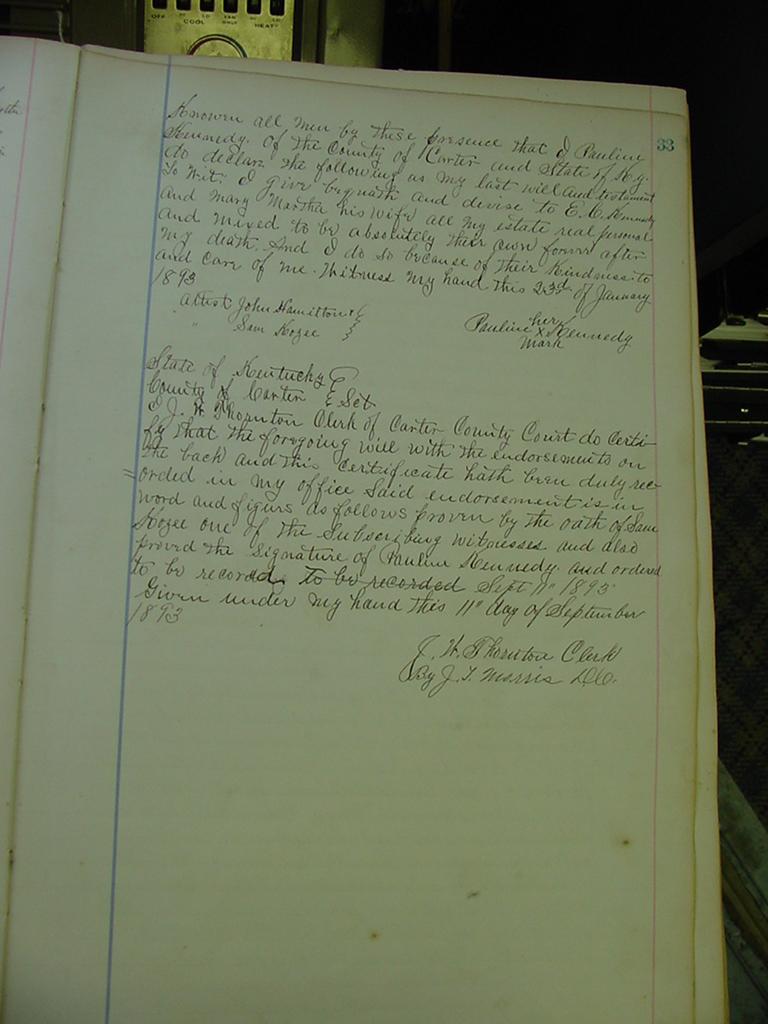 OFF LO COOL FAN ONLY LO HEAT
33
Knowen all men by these presence that I Pauline
Kennedy. Of the County of Carter and State of Ky.
do declare the following as my last will and testament
To Wit: I give bequeath and devise to E. C. Kennedy
and Mary Martha his wife all my estate real personal
and mixed to be absolutely their own forever after
my death. And I do so because of their Kindness to
and care of me. Witness my hand this 23rd of January
1893
Attest John Hamilton
" Sam Kozee
her
Pauline X Kennedy
mark
State of Kentucky
County of Carter Sct
I J. W. Thornton Clerk of Carter County Court do certi-
fy that the foregoing will with the endorsements on
the back and this certificate hath been duly rec-
=orded in my office Said endorsement is in
word and figurs as follows proven by the oath of Sam
Kozee one of the Subscribing witnesses and also
proved the Signature of Pauline Kennedy and ordered
to be recorded, to be recorded Sept 11" 1893
Given under my hand this 11" day of September
1893
J. W. Thornton Clerk
By J. T. Morris D.C.